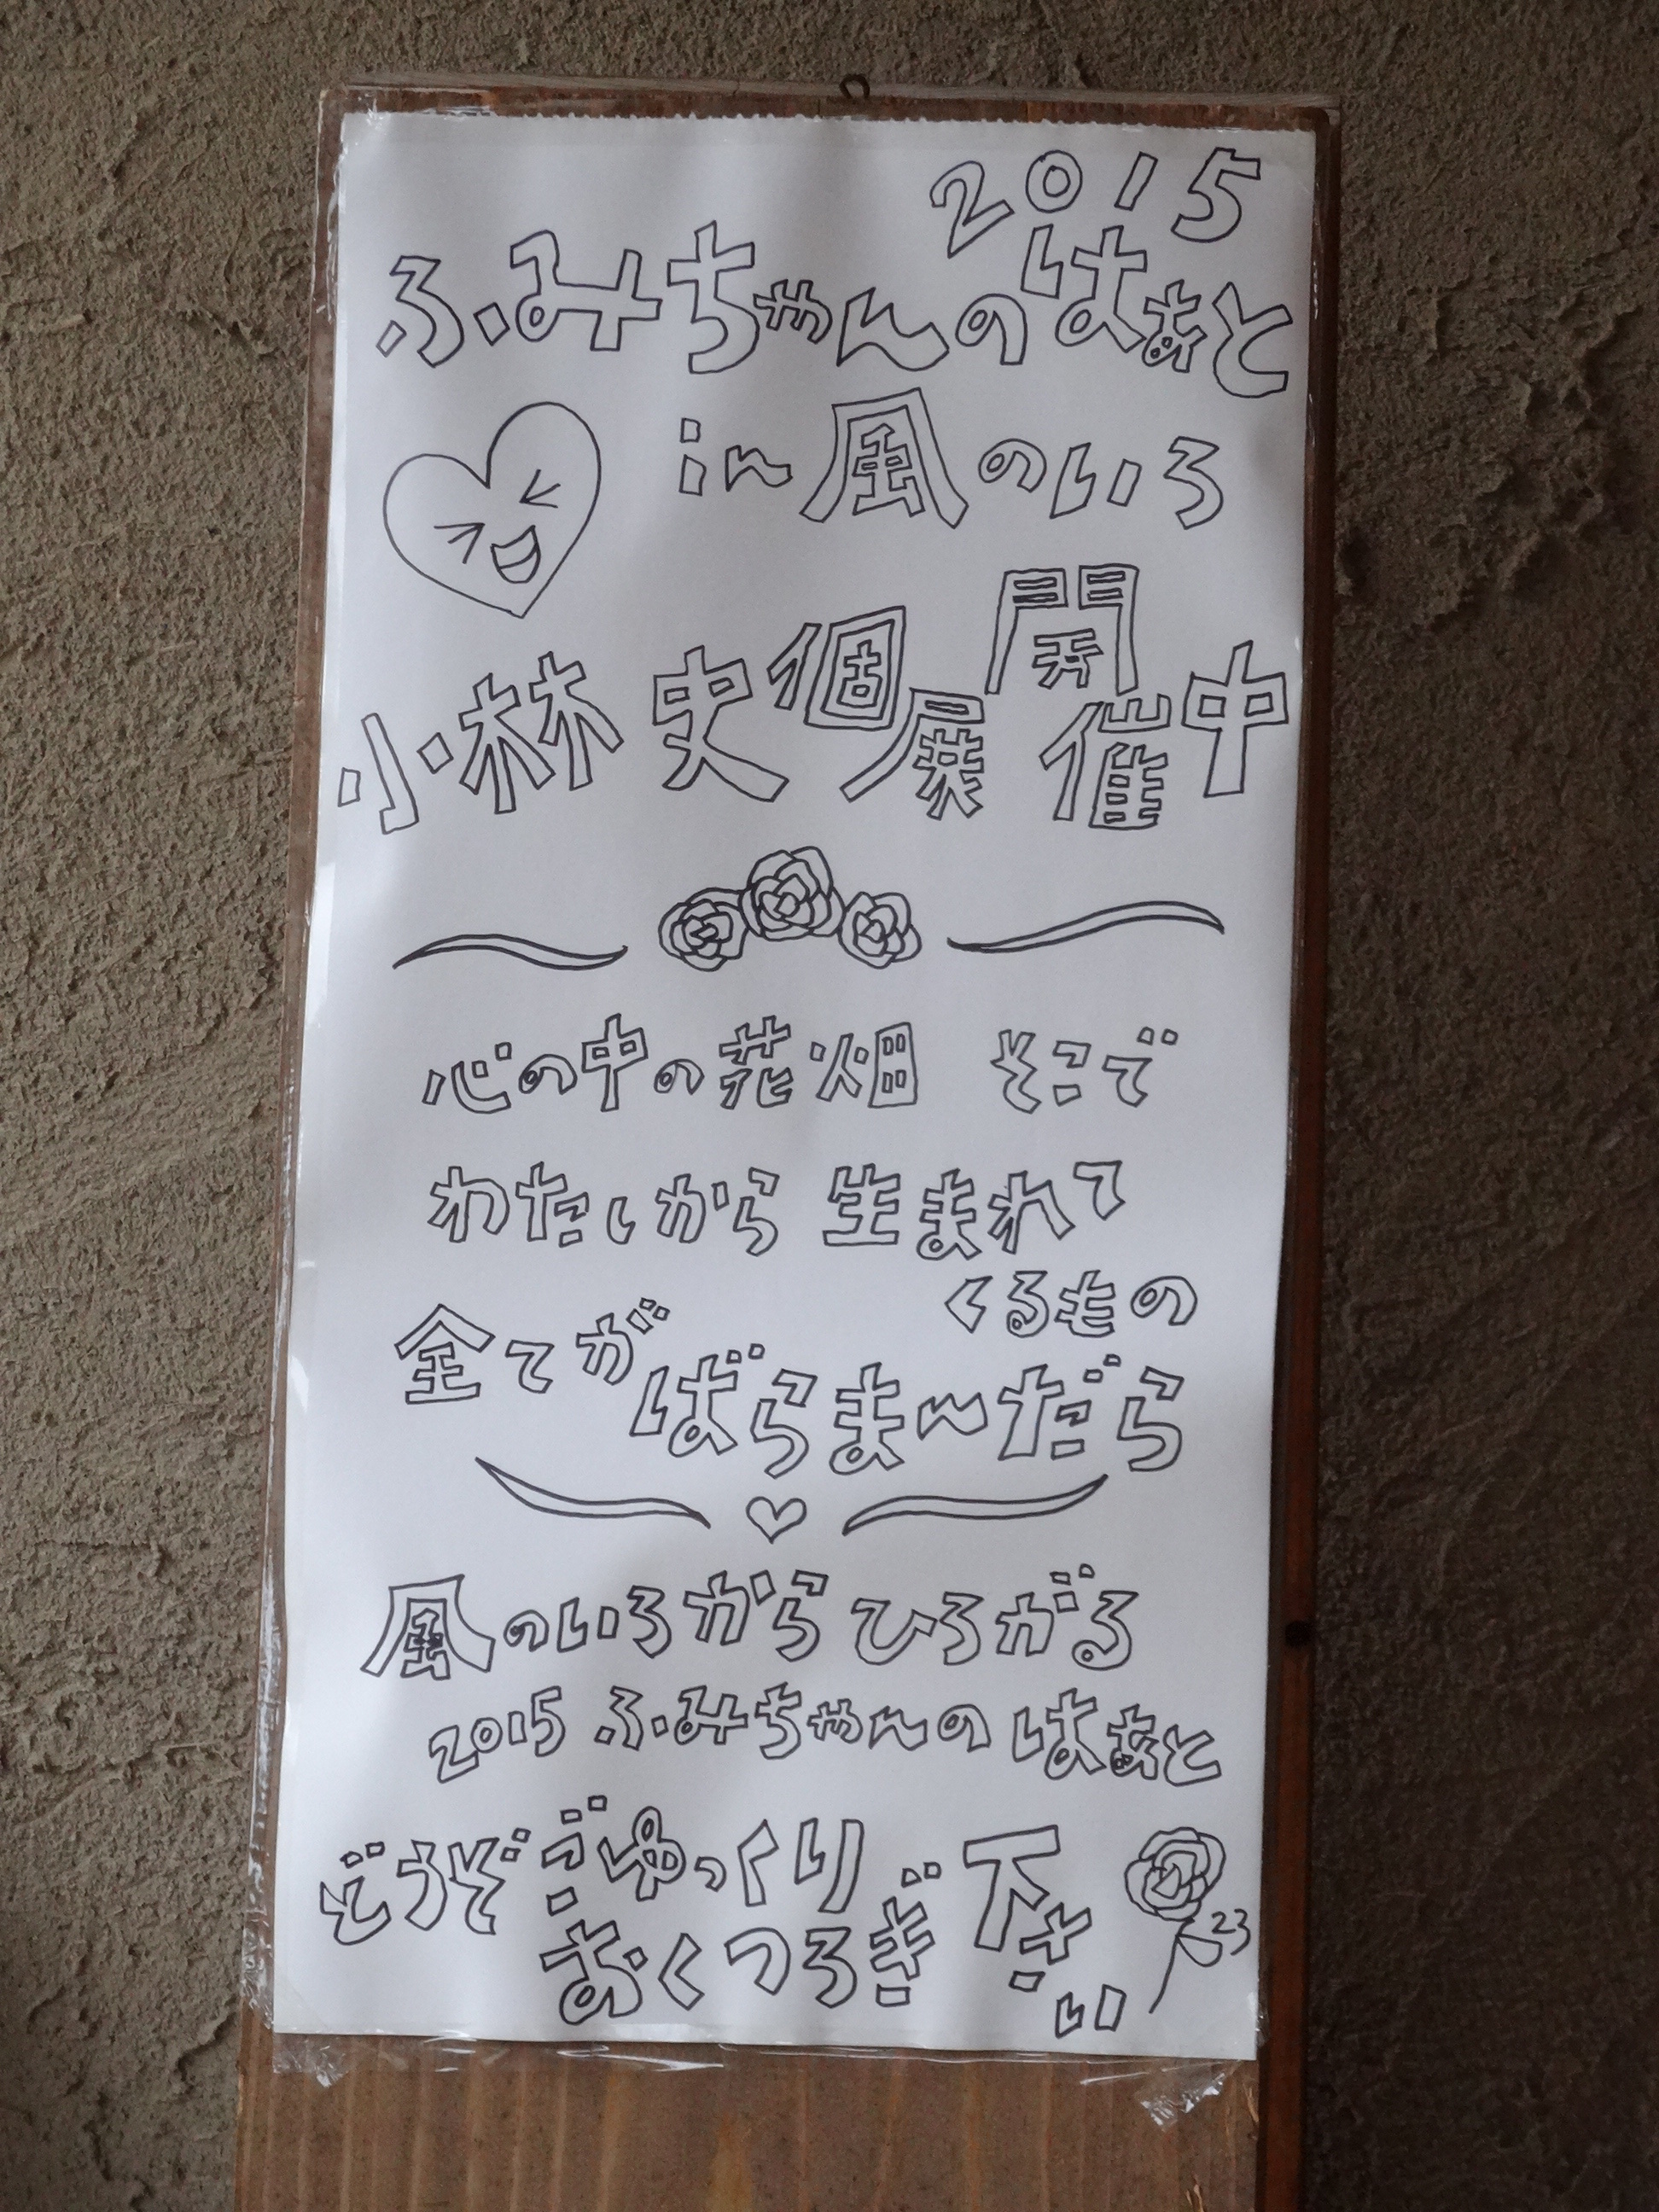 2015
ふみちゃんのはぁと
in 風のいろ
小林 史 個展 開催中
心の中の花畑 そこで
わたしから 生まれて
くるもの
全てが ばらま〜だら
風のいろから ひろがる
2015 ふみちゃんの はぁと
どうぞ ごゆっくり
おくつろぎ 下さい
23